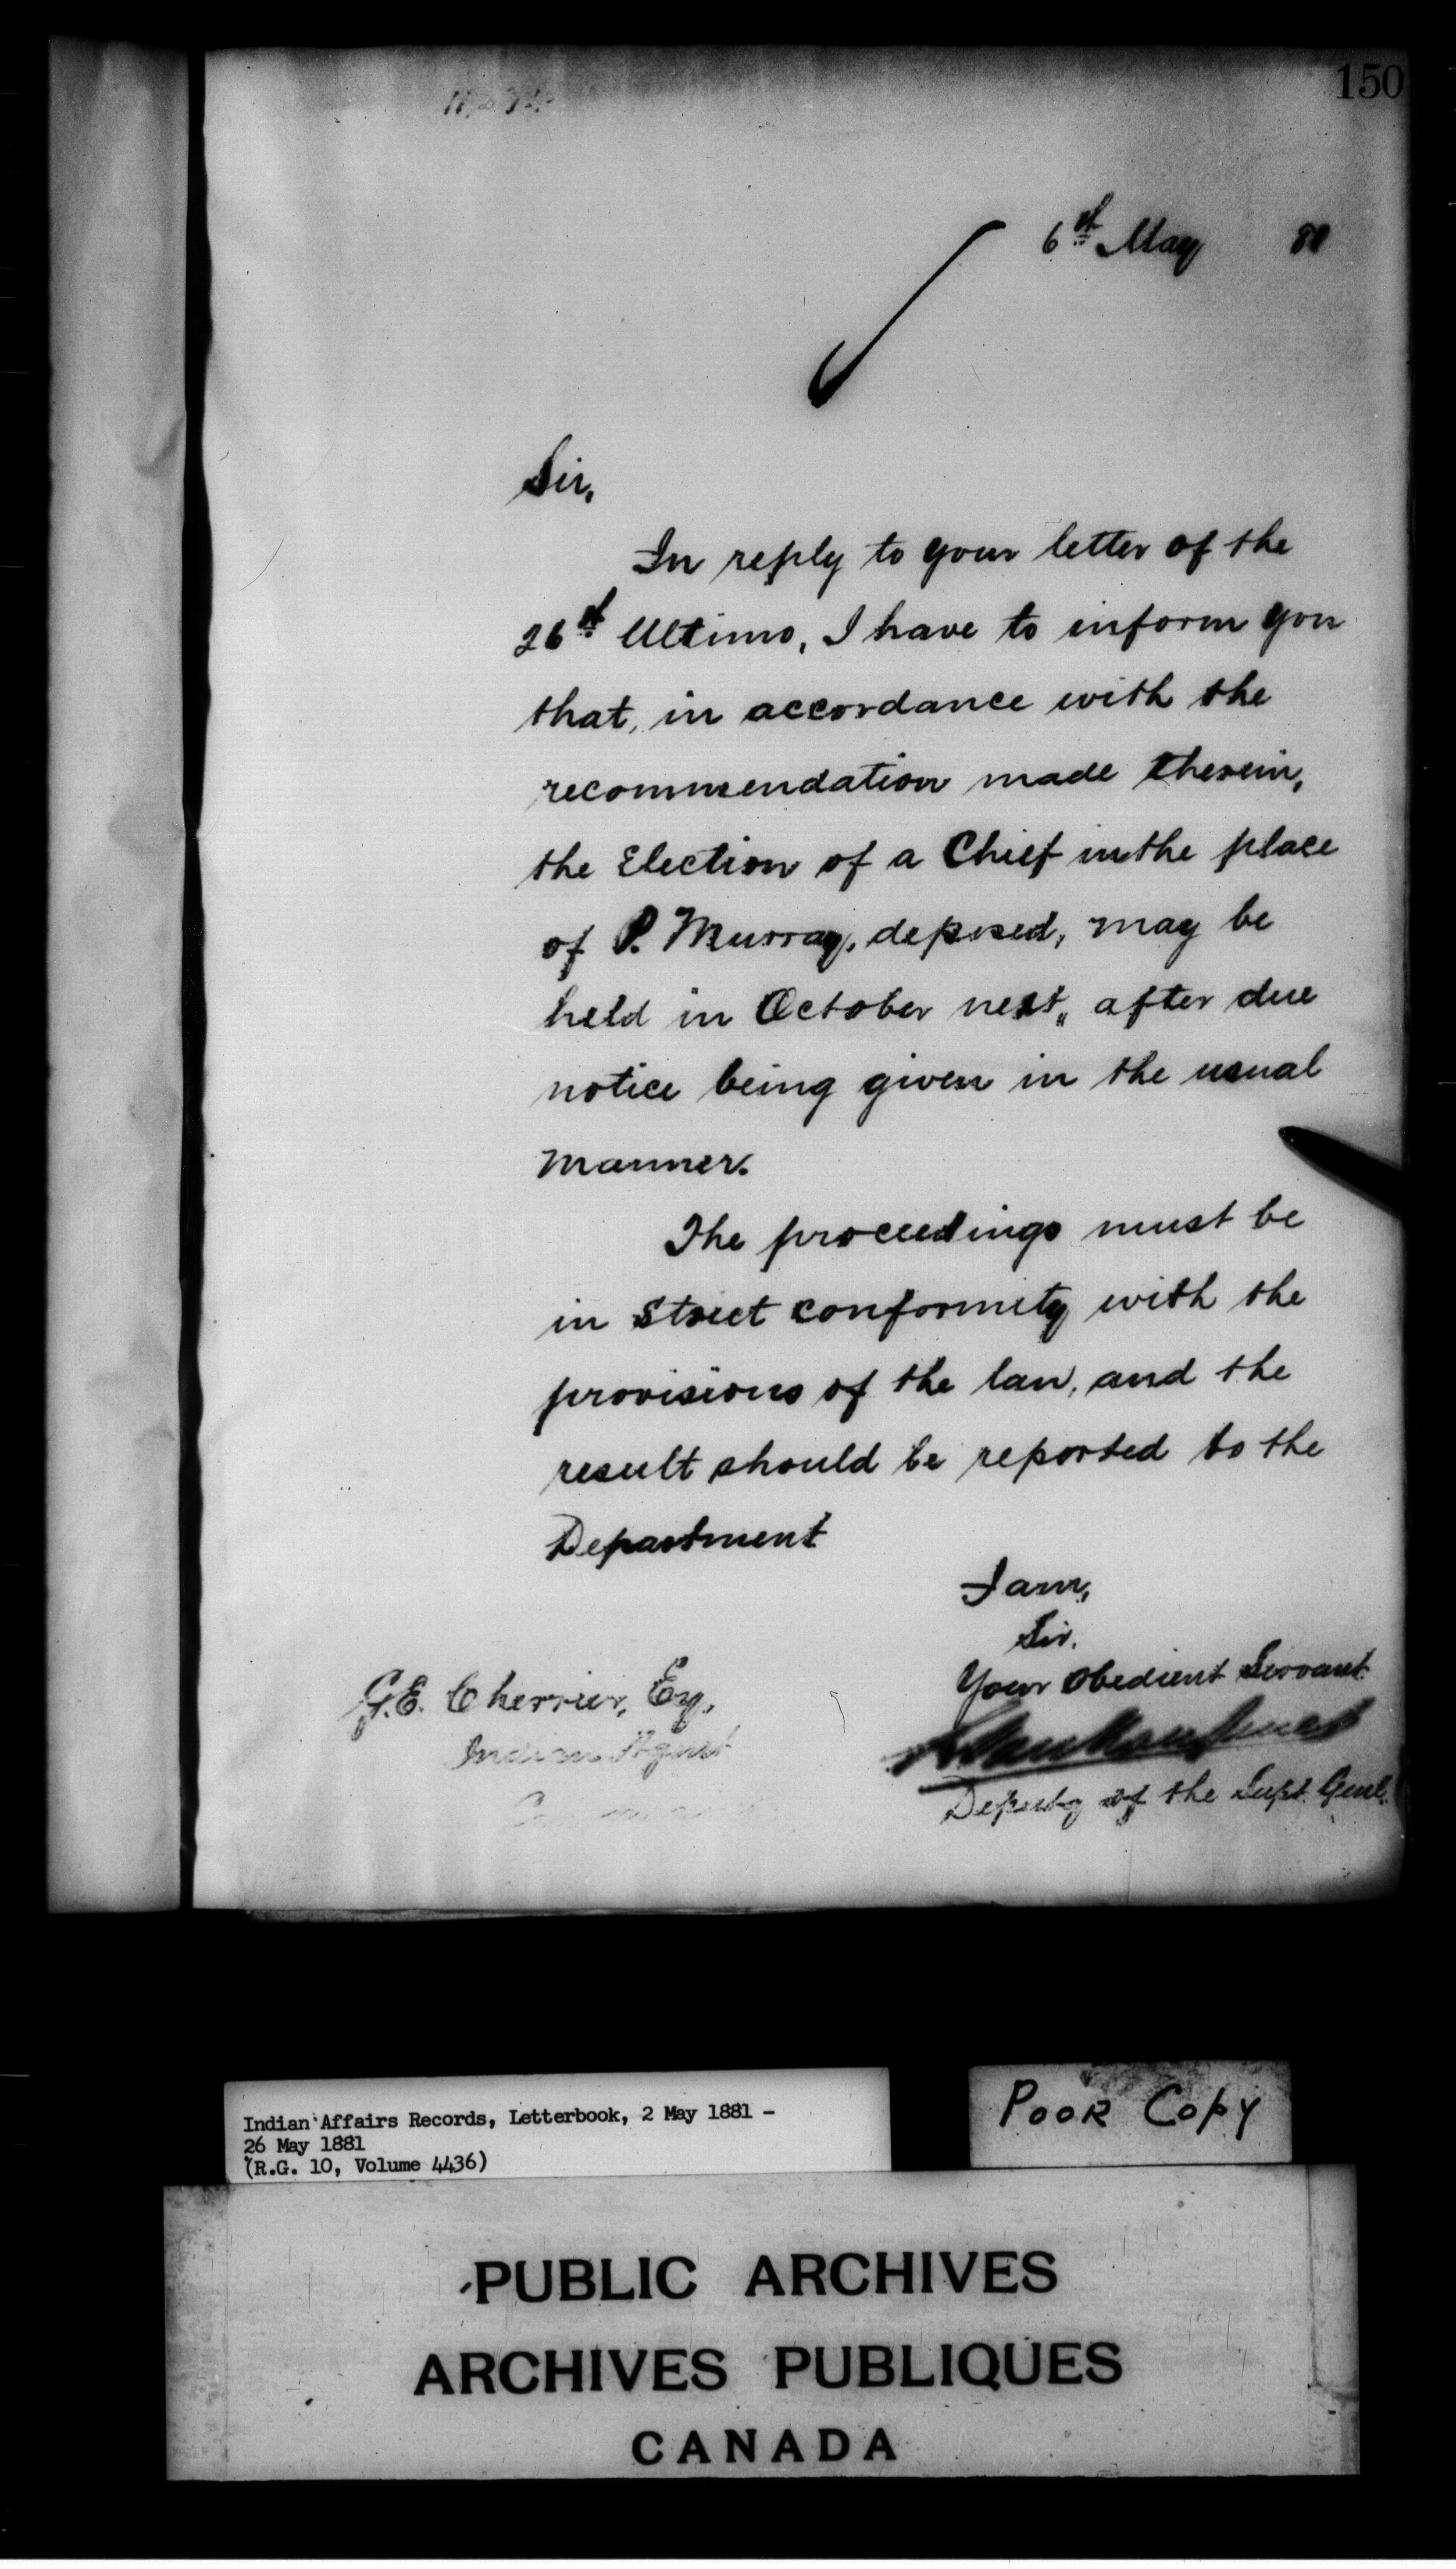 150
6th May 81
Sir,
In reply to your letter of the
26th Ultimo, I have to inform you
that, in accordance with the
recommendation made therein,
the Election of a Chief in the place
of P. Murray, deposed, may be
held in October next, after due
notice being given in the usual
manner.
The proceedings must be
in Strict conformity with the
provisions of the law, and the
result should be reported to the
Department
I am,
Sir,
Your Obedient Servant
G.E. Cherrier, Esq.
Indian Agent
Deputy of the Supt. Genl.
Indian Affairs Records, Letterbook, 2 May 1881 -
26 May 1881
(R.G. 10, Volume 4436)
POOR COPY
PUBLIC ARCHIVES
ARCHIVES PUBLIQUES
CANADA